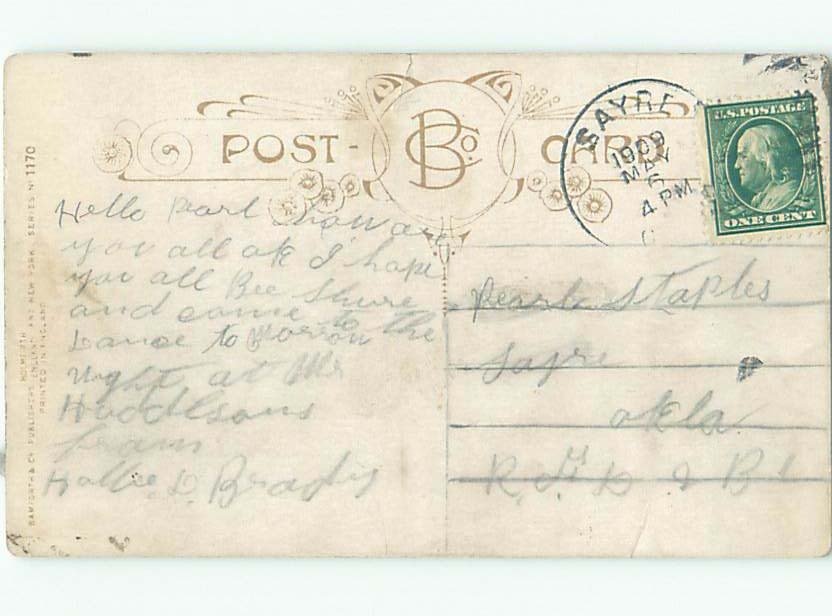 POST-
B Co.
CARD
SAYRE
1909
MAY
6
4 PM
U.S. POSTAGE
ONE CENT
Hello Pearl how are
you all ok I hope
you all Bee Shure
and come to the
Dance to Morrow
night at Mr
Huddlsons
from
Hallie D. Brady
Pearl Staples
Sayre
okla
R.
BAMFORTH & Co PUBLISHERS ENGLAND AND NEW YORK SERIES No 1170
HOLMFIRTH
PRINTED IN ENGLAND